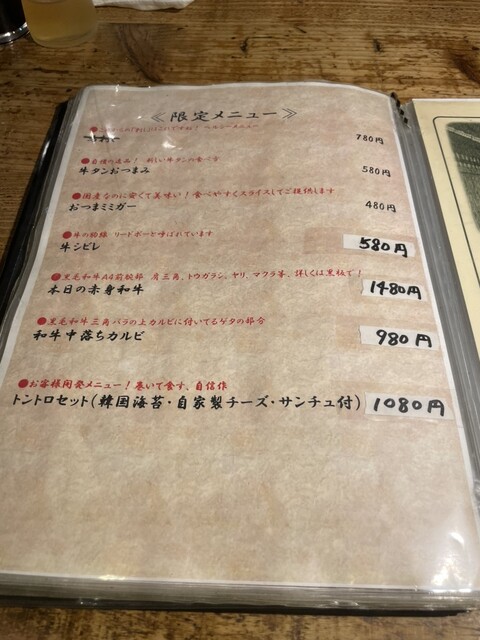 ≪限定メニュー≫
780円
●自慢の逸品! 新しい牛タンの食べ方
牛タンおつまみ 580円
●国産なのに安くて美味い!食べやすくスライスしてご提供します
おつまミミガー 480円
●牛の胸腺 リードボーと呼ばれています
牛シビレ 580円
●黒毛和牛A4前腕部 肩三角、トウガラシ、ヤリ、マクラ等、詳しくは黒板で!
本日の赤身和牛 1480円
●黒毛和牛三角バラの上カルビに付いてるゲタの部分
和牛中落ちカルビ 980円
●お客様開発メニュー!巻いて食す、自信作
トントロセット(韓国海苔・自家製チーズ・サンチュ付) 1080円